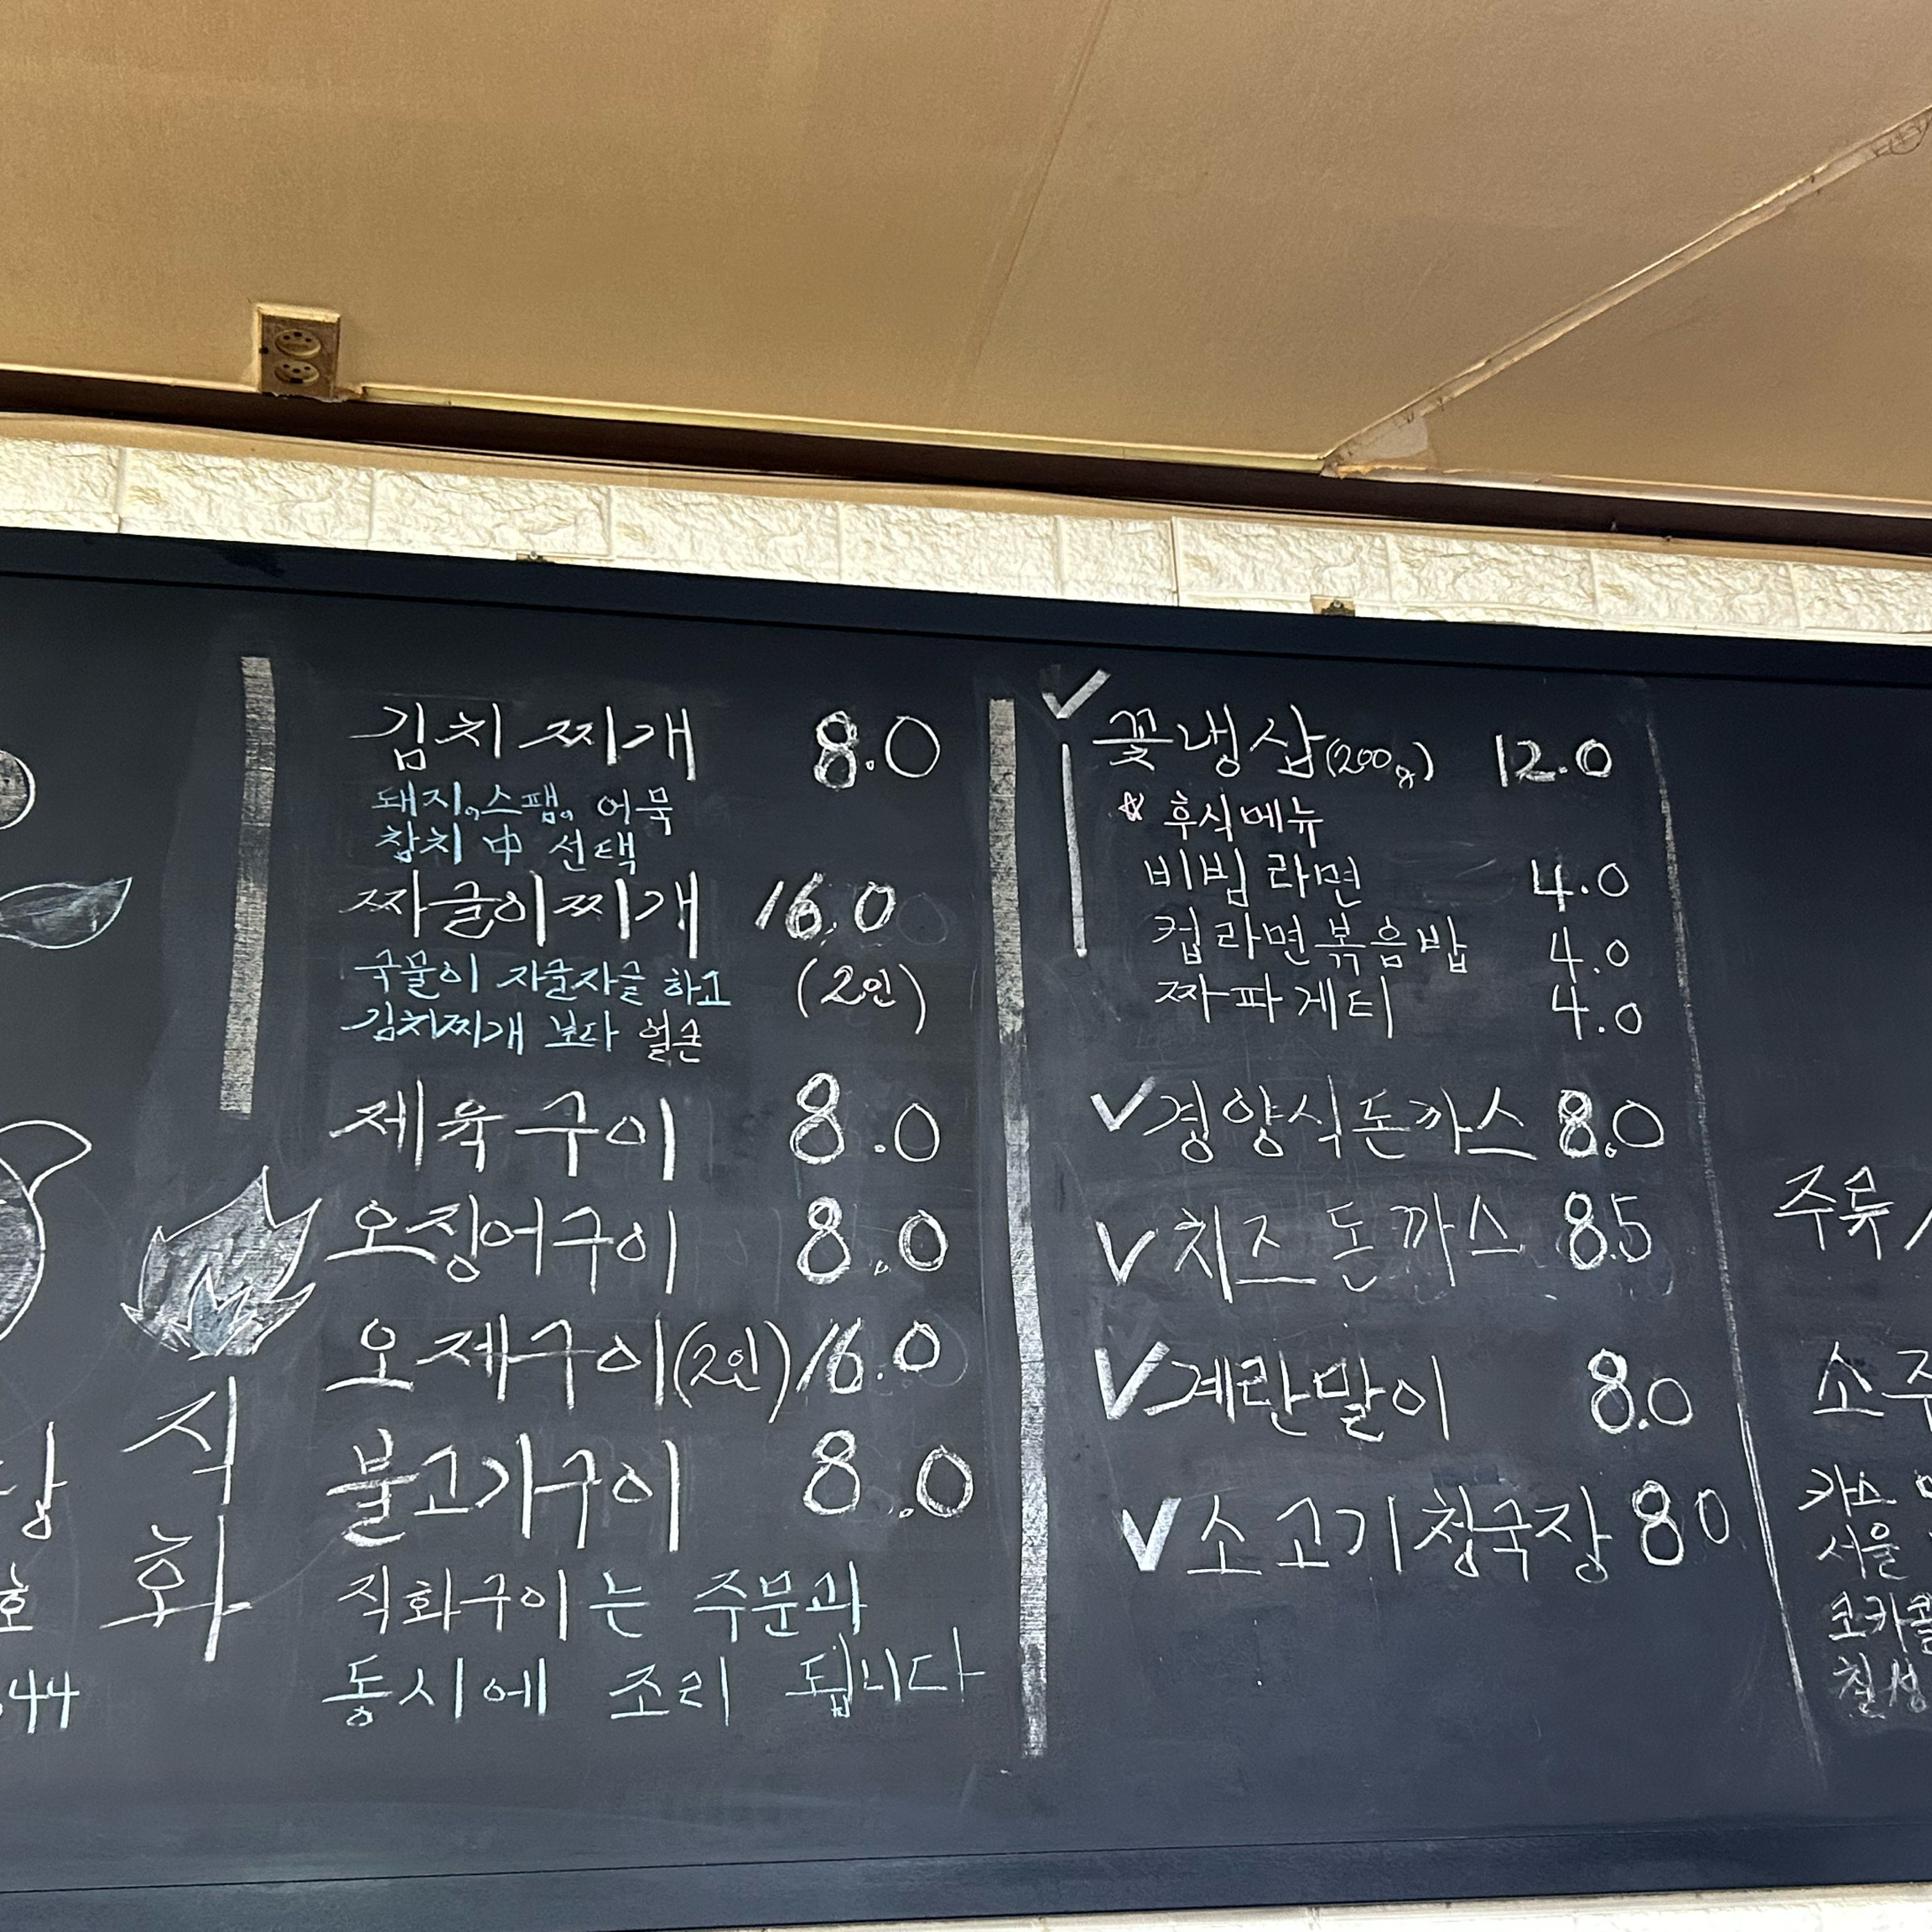 김치찌개 8.0
돼지, 스팸, 어묵
참치 中 선택
짜글이찌개 16.0
국물이 자글자글 하고 (2인)
김치찌개 보다 얼큰
제육구이 8.0
오징어구이 8.0
오제구이(2인) 16.0
불고기구이 8.0
직화구이는 주문과
동시에 조리 됩니다
직
화
당
호
44
✓ 꽃냉삼(200g) 12.0
☆ 후식메뉴
비빔라면 4.0
컵라면볶음밥 4.0
짜파게티 4.0
✓ 경양식돈까스 8.0
✓ 치즈돈까스 8.5
✓ 계란말이 8.0
✓ 소고기청국장 8.0
주류/
소주
카스
서울
코카콜
칠성